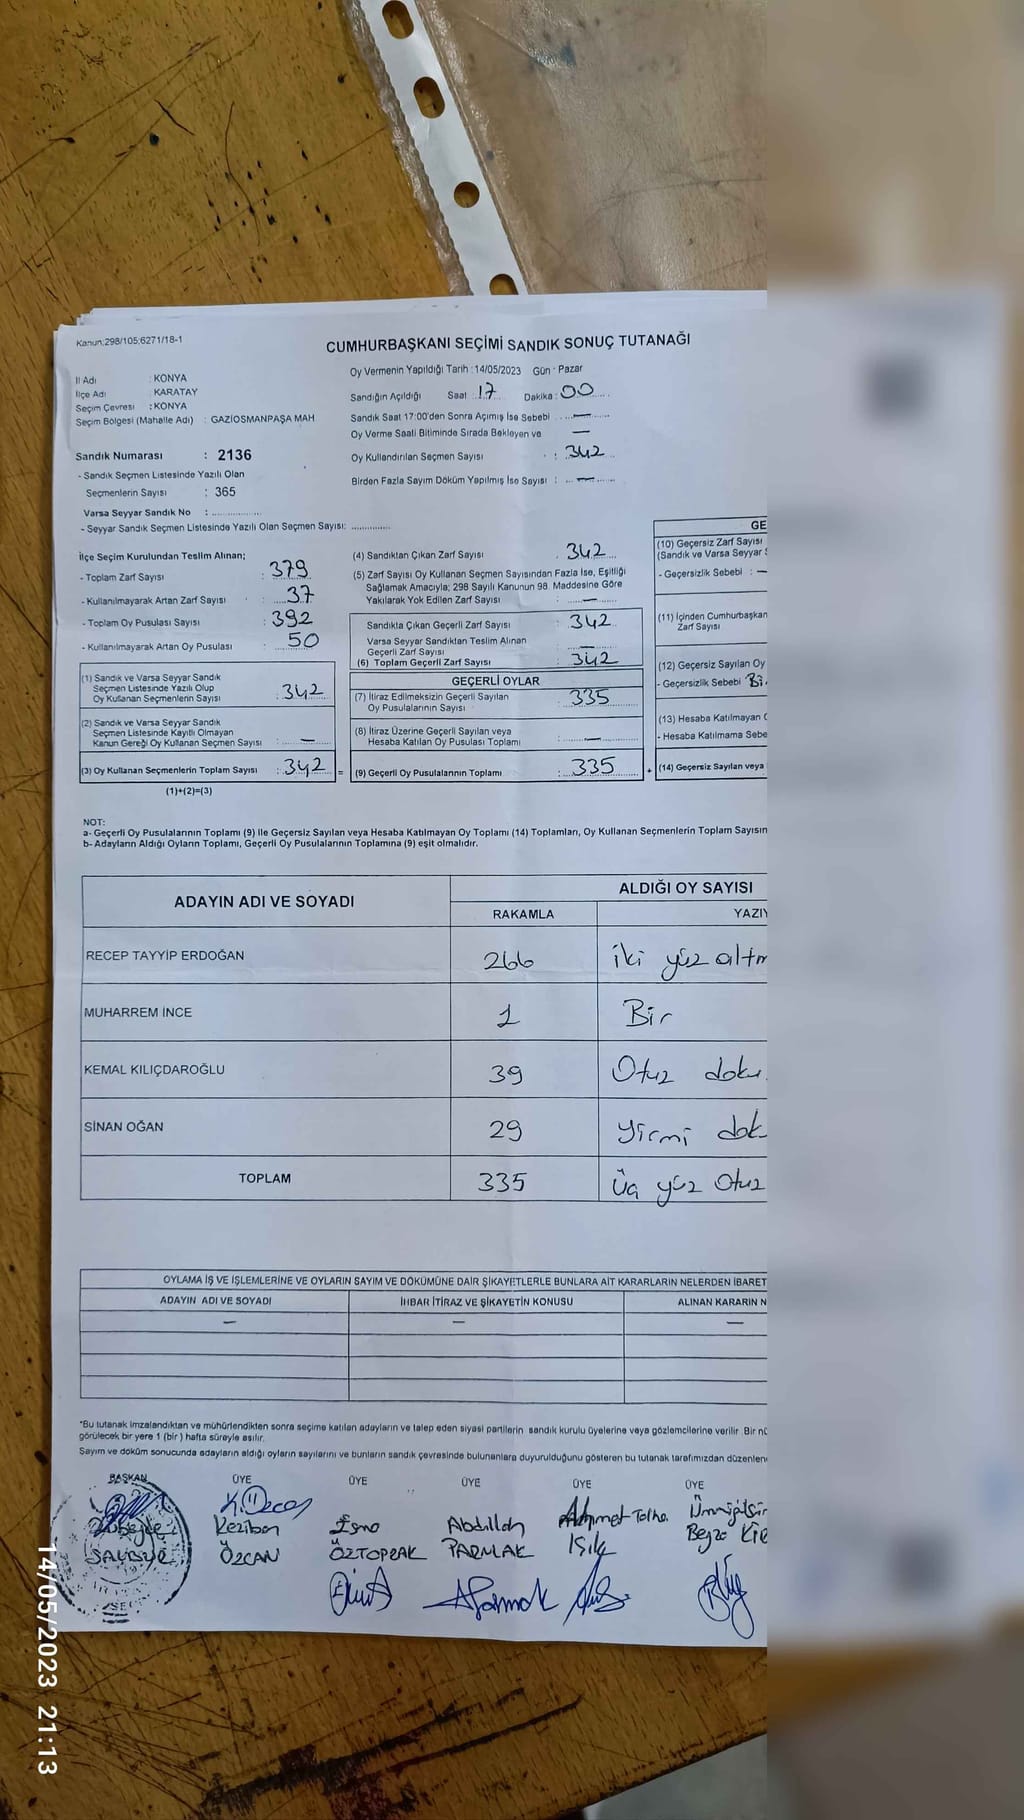 Kanun:298/105;6271/18-1
CUMHURBAŞKANI SEÇİMİ SANDIK SONUÇ TUTANAĞI
İl Adı : KONYA
İlçe Adı : KARATAY
Seçim Çevresi : KONYA
Seçim Bölgesi (Mahalle Adı) : GAZİOSMANPAŞA MAH
Oy Vermenin Yapıldığı Tarih :14/05/2023 Gün : Pazar
Sandığın Açıldığı Saat : 17 Dakika : 00
Sandık Saat 17:00'den Sonra Açımış İse Sebebi : —
Oy Verme Saati Bitiminde Sırada Bekleyen ve : —
Oy Kullandırılan Seçmen Sayısı : 342
Birden Fazla Sayım Döküm Yapılmış İse Sayısı : —
Sandık Numarası : 2136
- Sandık Seçmen Listesinde Yazılı Olan
Seçmenlerin Sayısı : 365
Varsa Seyyar Sandık No :
- Seyyar Sandık Seçmen Listesinde Yazılı Olan Seçmen Sayısı:
İlçe Seçim Kurulundan Teslim Alınan;
- Toplam Zarf Sayısı : 379
- Kullanılmayarak Artan Zarf Sayısı : 37
- Toplam Oy Pusulası Sayısı : 392
- Kullanılmayarak Artan Oy Pusulası : 50
(1) Sandık ve Varsa Seyyar Sandık
Seçmen Listesinde Yazılı Olup
Oy Kullanan Seçmenlerin Sayısı : 342
(2) Sandık ve Varsa Seyyar Sandık
Seçmen Listesinde Kayıtlı Olmayan
Kanun Gereği Oy Kullanan Seçmen Sayısı : —
(3) Oy Kullanan Seçmenlerin Toplam Sayısı : 342 =
(1)+(2)=(3)
(4) Sandıktan Çıkan Zarf Sayısı : 342
(5) Zarf Sayısı Oy Kullanan Seçmen Sayısından Fazla İse, Eşitliği
Sağlamak Amacıyla; 298 Sayılı Kanunun 98. Maddesine Göre
Yakılarak Yok Edilen Zarf Sayısı : —
Sandıkla Çıkan Geçerli Zarf Sayısı : 342
Varsa Seyyar Sandıktan Teslim Alınan
Geçerli Zarf Sayısı : —
(6) Toplam Geçerli Zarf Sayısı : 342
GEÇERLİ OYLAR
(7) İtiraz Edilmeksizin Geçerli Sayılan
Oy Pusulalarının Sayısı : 335
(8) İtiraz Üzerine Geçerli Sayılan veya
Hesaba Katılan Oy Pusulası Toplamı : —
(9) Geçerli Oy Pusulalarının Toplamı : 335 +
GE
(10) Geçersiz Zarf Sayısı
(Sandık ve Varsa Seyyar
- Geçersizlik Sebebi : —
(11) İçinden Cumhurbaşkan
Zarf Sayısı
(12) Geçersiz Sayılan Oy
- Geçersizlik Sebebi Bi
(13) Hesaba Katılmayan
- Hesaba Katılmama Sebe
(14) Geçersiz Sayılan veya
NOT:
a- Geçerli Oy Pusulalarının Toplamı (9) İle Geçersiz Sayılan veya Hesaba Katılmayan Oy Toplamı (14) Toplamları, Oy Kullanan Seçmenlerin Toplam Sayısın
b- Adayların Aldığı Oyların Toplamı, Geçerli Oy Pusulalarının Toplamına (9) eşit olmalıdır.
ADAYIN ADI VE SOYADI
ALDIĞI OY SAYISI
RAKAMLA YAZIY
RECEP TAYYİP ERDOĞAN 266 iki yüz altm
MUHARREM İNCE 1 Bir
KEMAL KILIÇDAROĞLU 39 Otuz doku
SİNAN OĞAN 29 yirmi dok
TOPLAM 335 üç yüz Otuz
OYLAMA İŞ VE İŞLEMLERİNE VE OYLARIN SAYIM VE DÖKÜMÜNE DAİR ŞİKAYETLERLE BUNLARA AİT KARARLARIN NELERDEN İBARET
ADAYIN ADI VE SOYADI İHBAR İTİRAZ VE ŞİKAYETİN KONUSU ALINAN KARARIN N
— — —
*Bu tutanak imzalandıktan ve mühürlendikten sonra seçime katılan adayların ve talep eden siyasi partilerin sandık kurulu üyelerine veya gözlemcilerine verilir. Bir nü
görülecek bir yere 1 (bir) hafta süreyle asılır.
Sayım ve döküm sonucunda adayların aldığı oyların sayılarını ve bunların sandık çevresinde bulunanlara duyurulduğunu gösteren bu tutanak tarafımızdan düzenlen
BAŞKAN ÜYE ÜYE ÜYE ÜYE ÜYE
Keziban ÖZCAN
Esma ÖZTOPRAK
Abdullah PARMAK
Ahmet Talha Işık
Beyza
14/05/2023 21:13